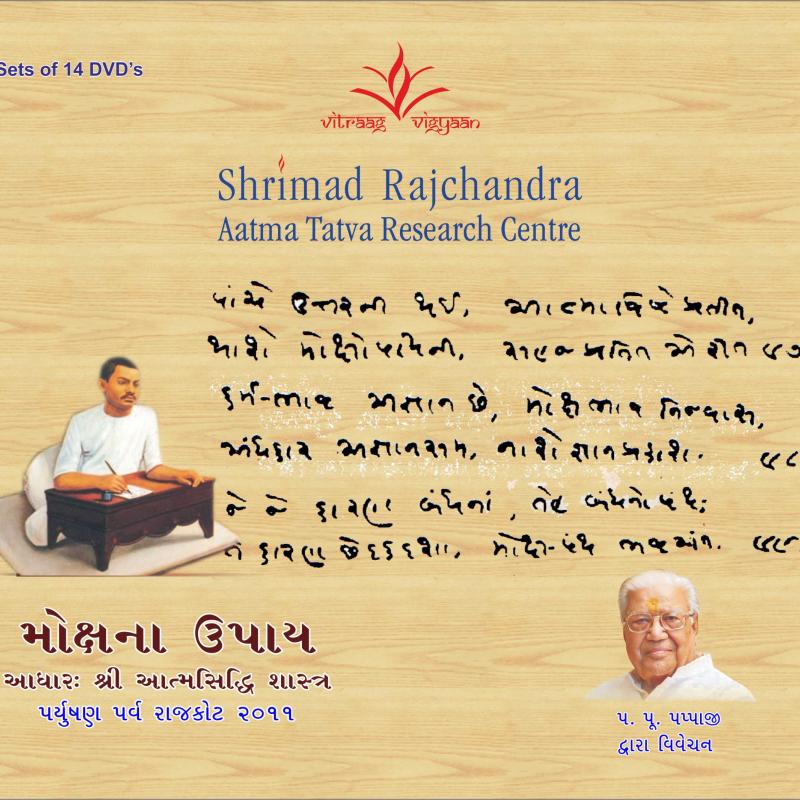 Sets of 14 DVD's
vitraag vigyaan
Shrimad Rajchandra
Aatma Tatva Research Centre
પાંચે ઉત્તરની થઈ, આત્મા વિષે પ્રતીત,
થાશે મોક્ષોપાયની, સહજ પ્રતિત એ રીત ૯૭
કર્મ-ભાવ અજ્ઞાન છે, મોક્ષભાવ નિજવાસ,
અંધકાર અજ્ઞાનસમ, નાશે જ્ઞાનપ્રકાશ. ૯૮
જે જે કારણ બંધનાં, તેહ બંધનો પંથ;
તે કારણ છેદકદશા, મોક્ષ-પંથ ભવઅંત. ૯૯
મોક્ષના ઉપાય
આધારઃ શ્રી આત્મસિદ્ધિ શાસ્ત્ર
પર્યુષણ પર્વ રાજકોટ ૨૦૧૧
પ. પૂ. પપ્પાજી
દ્વારા વિવેચન